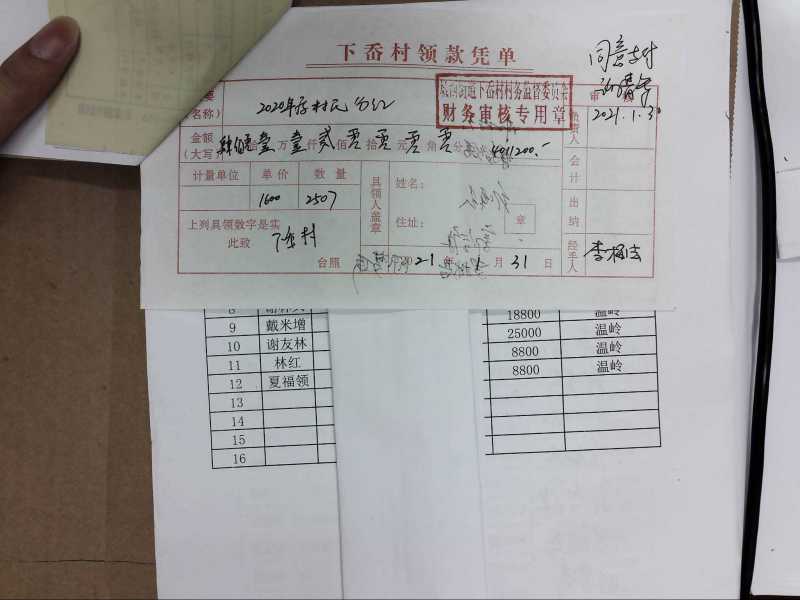 下岙村领款凭单
同意支付
2021.1.3
要
名称）
2020年度村民分红
财务审核专用章
审
负责人
金额
（大写）
壹 万 壹 仟 贰 佰 零 拾 零 元 零 角 零 分
4011200.-
计量单位 单价 数量
1600 2507
具领人盖章
姓名：
住址：
章
会计
出纳
经手人
上列具领数字是实
此致
下岙村
台照
2021年1月31日
8
18800 温岭
9 戴米增 25000 温岭
10 谢友林 8800 温岭
11 林红 8800 温岭
12 夏福领
13
14
15
16